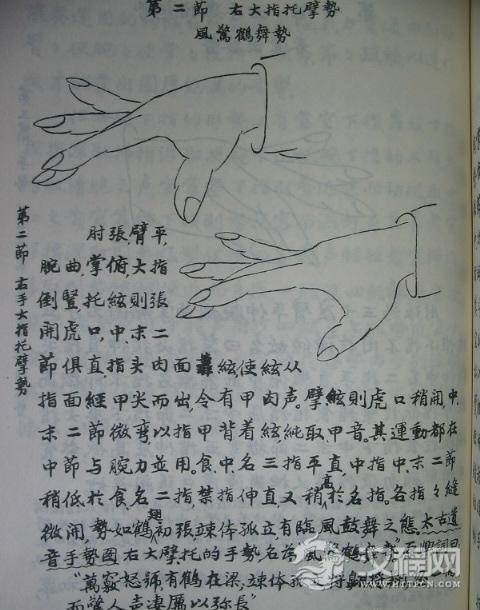 第二節 右大指托擘勢
風驚鶴舞勢
第二節 右手大指托擘勢
肘張臂平,
腕曲,掌俯,大指
倒豎,托絃則張
開虎口,中,末二
節俱直,指头内面絃使絃从
指面經甲尖而出,令有甲肉声。擘絃則虎口稍闭,中,
末二節微弯以指甲背着絃,純取甲音。其運動都在
中節与腕力並用。食,中,名三指平直,中指中,末二節
稍低於食名二指,禁指伸直,又稍高於名指。各指々缝
微闭,勢如鶴翅初張竦体孤立,有臨風鼓舞之態太古遺
音手勢图右大擘托的手勢名為"風驚鶴舞"
"萬竅怒號,有鶴在梁,竦体孤立
而驚人声凄厲以弥長"
文程网